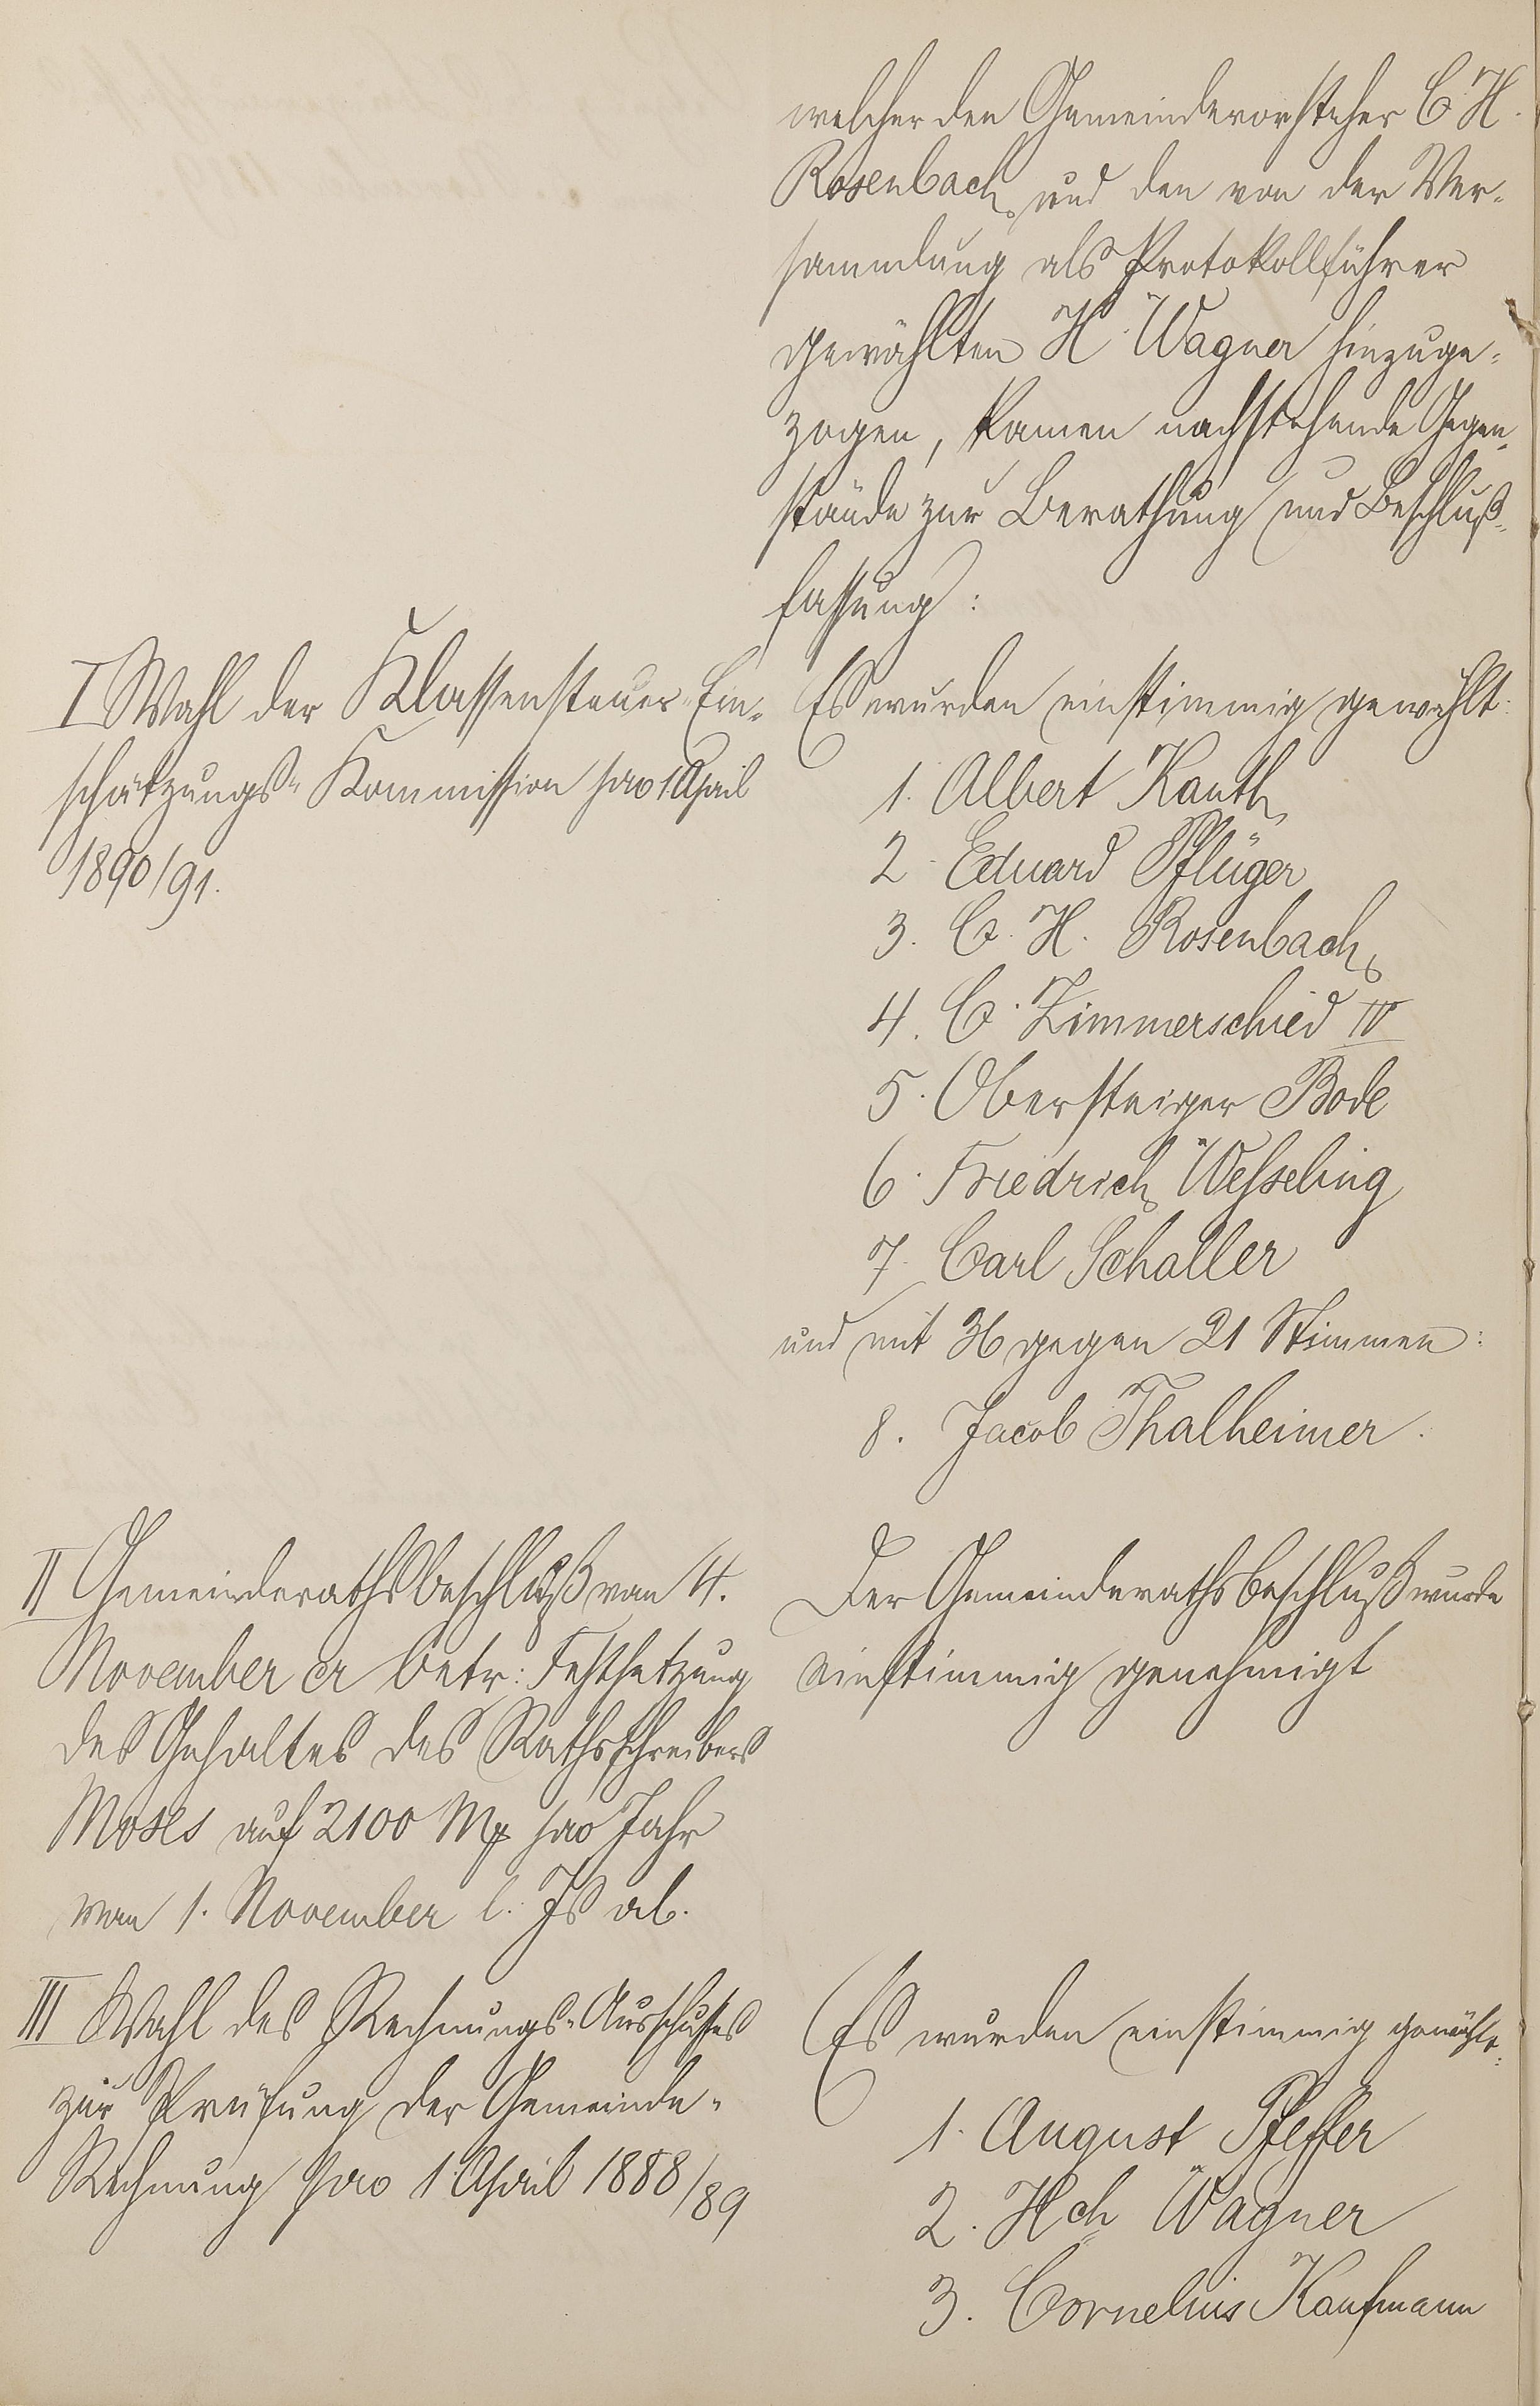 welcher den Gemeindevorsteher C. H.
Rosenbach und den von der Ver-
sammlung als Protokollführer
gewählten H. Wagner hinzuge-
zogen, kamen nachstehende Gegen-
stände zur Berathung und Beschluß-
fassung:
I Wahl der Klassensteuer-Ein-
schätzungs-Kommission pro 1 April
1890/91.
Es wurden einstimmig gewählt:
1. Albert Kauth
2. Eduard Pflüger
3. C. H. Rosenbach
4. C. Zimmerschied IV
5. Obersteiger Bode
6. Friedrich Wesseling
7. Carl Schaller
und mit 36 gegen 21 Stimmen:
8. Jacob Thalheimer.
II Gemeinderathsbeschluß vom 4.
November cr betr: Festsetzung
des Gehaltes des Rathsschreibers
Moses auf 2100 Mk pro Jahr
vom 1. November l. Js ab.
Der Gemeinderathsbeschluß wurde
einstimmig genehmigt
III Wahl des Rechnungs-Ausschusses
zur Prüfung der Gemeinde-
Rechnung pro 1 April 1888/89
Es wurden einstimmig gewählt:
1. August Pfeffer
2. Hch Wagner
3. Cornelius Kaufmann